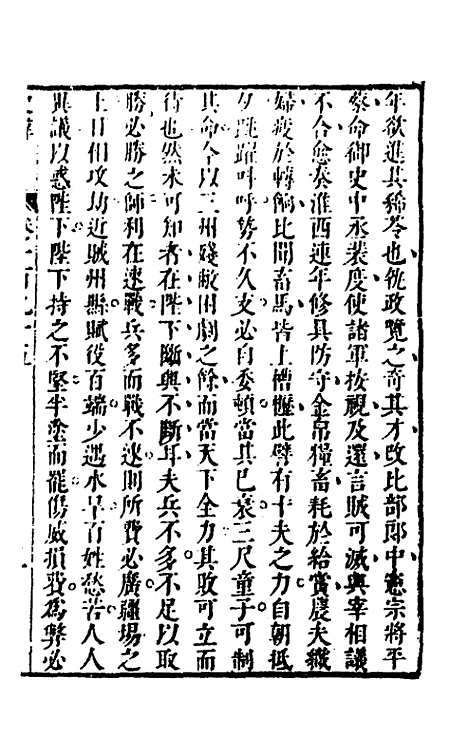 年欲進其稀苓也執政覽之奇其才改比部郎中憲宗將平
蔡命御史中丞裴度使諸軍按視及還言賊可滅與宰相議
不合愈奏淮西連年修具防守金帛糧畜耗於給賞農夫織
婦疲於轉餉比聞畜馬皆上槽櫪此譬有十夫之力自朝抵
夕跳躍叫呼勢不久支必自委頓當其已衰三尺童子可制
其命今以三州殘敝困劇之餘而當天下全力其敗可立而
待也然未可知者在陛下斷與不斷耳夫兵不多不足以取
勝必勝之師利在速戰兵多而戰不速則所費必廣疆場之
上日相攻劫近賊州縣賦役百端少遇水旱百姓愁苦人人
異議以惑陛下陛下持之不堅半塗而罷傷威損費為弊必